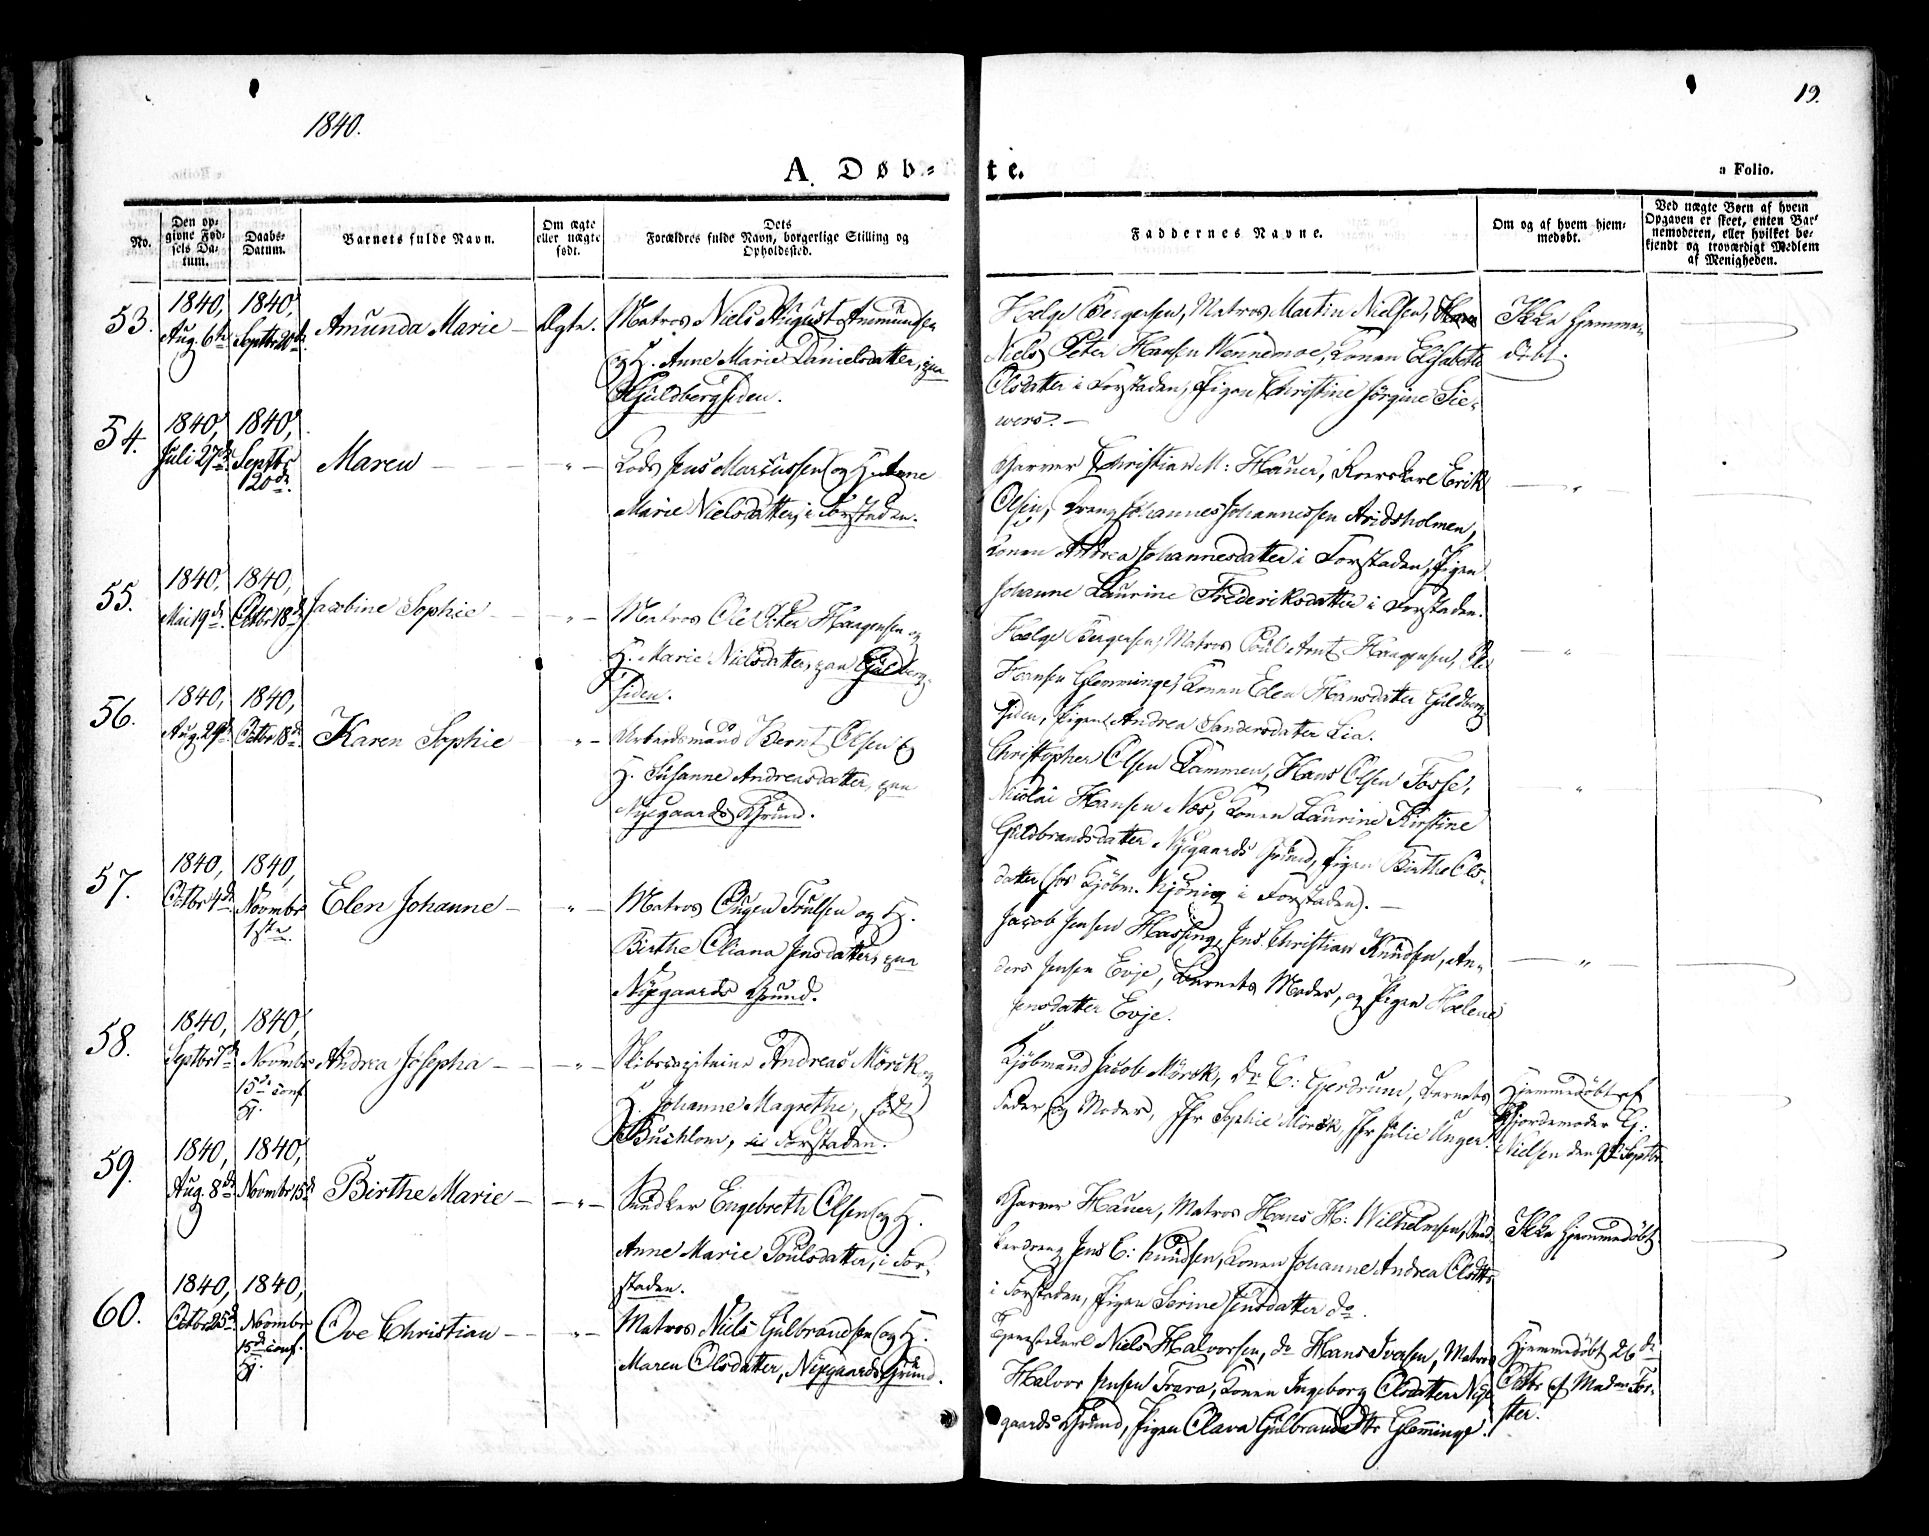 1840.
19.
A. Døb-te.
a Folio.
No.
Den opgivne Fødsels Datum.
Daabs-Datum.
Barnets fulde Navn.
Om ægte eller uægte født.
Dets Forældres fulde Navn, borgerlige Stilling og Opholdssted.
Faddernes Navne.
Om og af hvem hjemmedøbt.
Ved uægte Børn af hvem Opgaven er skeet, enten Barnemoderen, eller hvilket bekjendt og troværdigt Medlem af Menigheden.
53.
1840, Aug. 6te
1840, Septbr 20de
Amunda Marie
Ægte.
Matros Niels August Amundsen
og H. Anne Marie Danielsdatter, paa
Guldbergsiden.
Helge Bergersen, Matros Martin Nielsen,
Niels Peter Hansen Wennemoe, Konen Elisabeth
Olsdatter i Forstaden, Pigen Christine Jørgine Sie-
wers.
Ikke Hjemme-
døbt.
54.
1840, Juli 27de
1840, Septbr 20de
Maren
"
Lods Jens Marcussen og H. Anne
Marie Nielsdatter, i Forstaden.
Garver Christian M: Hauer, Roerskarl Erik
Olsen, Dreng Johannes Johannessen Aridsholmen,
Konen Andrea Johannesdatter i Forstaden, Pigen
Johanne Laurine Frederiksdatter i Forstaden.
"
55.
1840, Mai 19de
1840, Octbr 18de
Jacobine Sophie
"
Matros Ole Peter Haagensen og
H. Marie Nielsdatter, paa Guldberg-
siden.
Helge Bergersen, Matros Poul Arnt Haagensen, Ole
Hansen Glemminge, Konen Elen Hansdatter Guldberg-
siden, Pigen Andrea Sandersdatter Lia.
"
56.
1840, Aug. 29de
1840, Octbr 18de
Karen Sophie
"
Arbeidsmand Bernt Olsen og
H. Susanne Andreasdatter, paa
Nyegaards Grund.
Christopher Olsen Dammen, Hans Olsen Fosse,
Nicolai Hansen Næs, Konen Laurine Kirstine
Guldbrandsdatter Nyegaards Grund, Pigen Birthe Ols-
datter (hos Kjøbm. Kjønig i Forstaden).
"
57.
1840, Octbr 4de
1840, Novmbr 1ste
Elen Johanne
"
Matros Eugen Trulsen og H.
Birthe Oliana Jensdatter, paa
Nyegaards Grund.
Jacob Jensen Hassing, Jens Christian Knudsen, An-
ders Jensen Evje, Barnets Moder, og Pigen Helene
Jensdatter Evje.
"
58.
1840, Septbr 7de
1840, Novmbr 15de conf. Hj.
Andrea Josepha
"
Skibscapitaine Andreas Mörck og
H. Johanne Magrethe, født
Buchlom, i Forstaden.
Kjöbmand Jacob Mörck, Dr. E: Gjerdrum, Barnets
Fader og Moder, Jfr Sophie Mörck, Jfr Julie Unger.
Hjemmedøbt af
Gjordemoder G:
Nielsen den 9de Septbr.
59.
1840, Aug. 8de
1840, Novmbr 15de
Birthe Marie
"
Bundker Engebreth Olsen og H.
Anne Marie Poulsdatter, i For-
staden.
Garver Hauer, Matros Hans H: Wilhelmsen, Bund-
kerdreng Jens E: Knudsen, Konen Johanne Andrea Olsdttr
i Forstaden, Pigen Serine Jensdatter do.
Ikke Hjemmedøbt.
60.
1840, Octbr 25de
1840, Novmbr 15de conf. Hj.
Ove Christian
"
Matros Niels Gulbrandsen og H.
Maren Olsdatter, Nyegaards Grund.
Niels Halvorsen, do Hans Iversen, Matros
Halvor Jensen Trara, Konen Ingeborg Olsdatter Nye-
gaards Grund, Pigen Olava Gulbrandsdttr Glemminge.
Hjemmedøbt 26de
Octbr af Madm For-
ster.